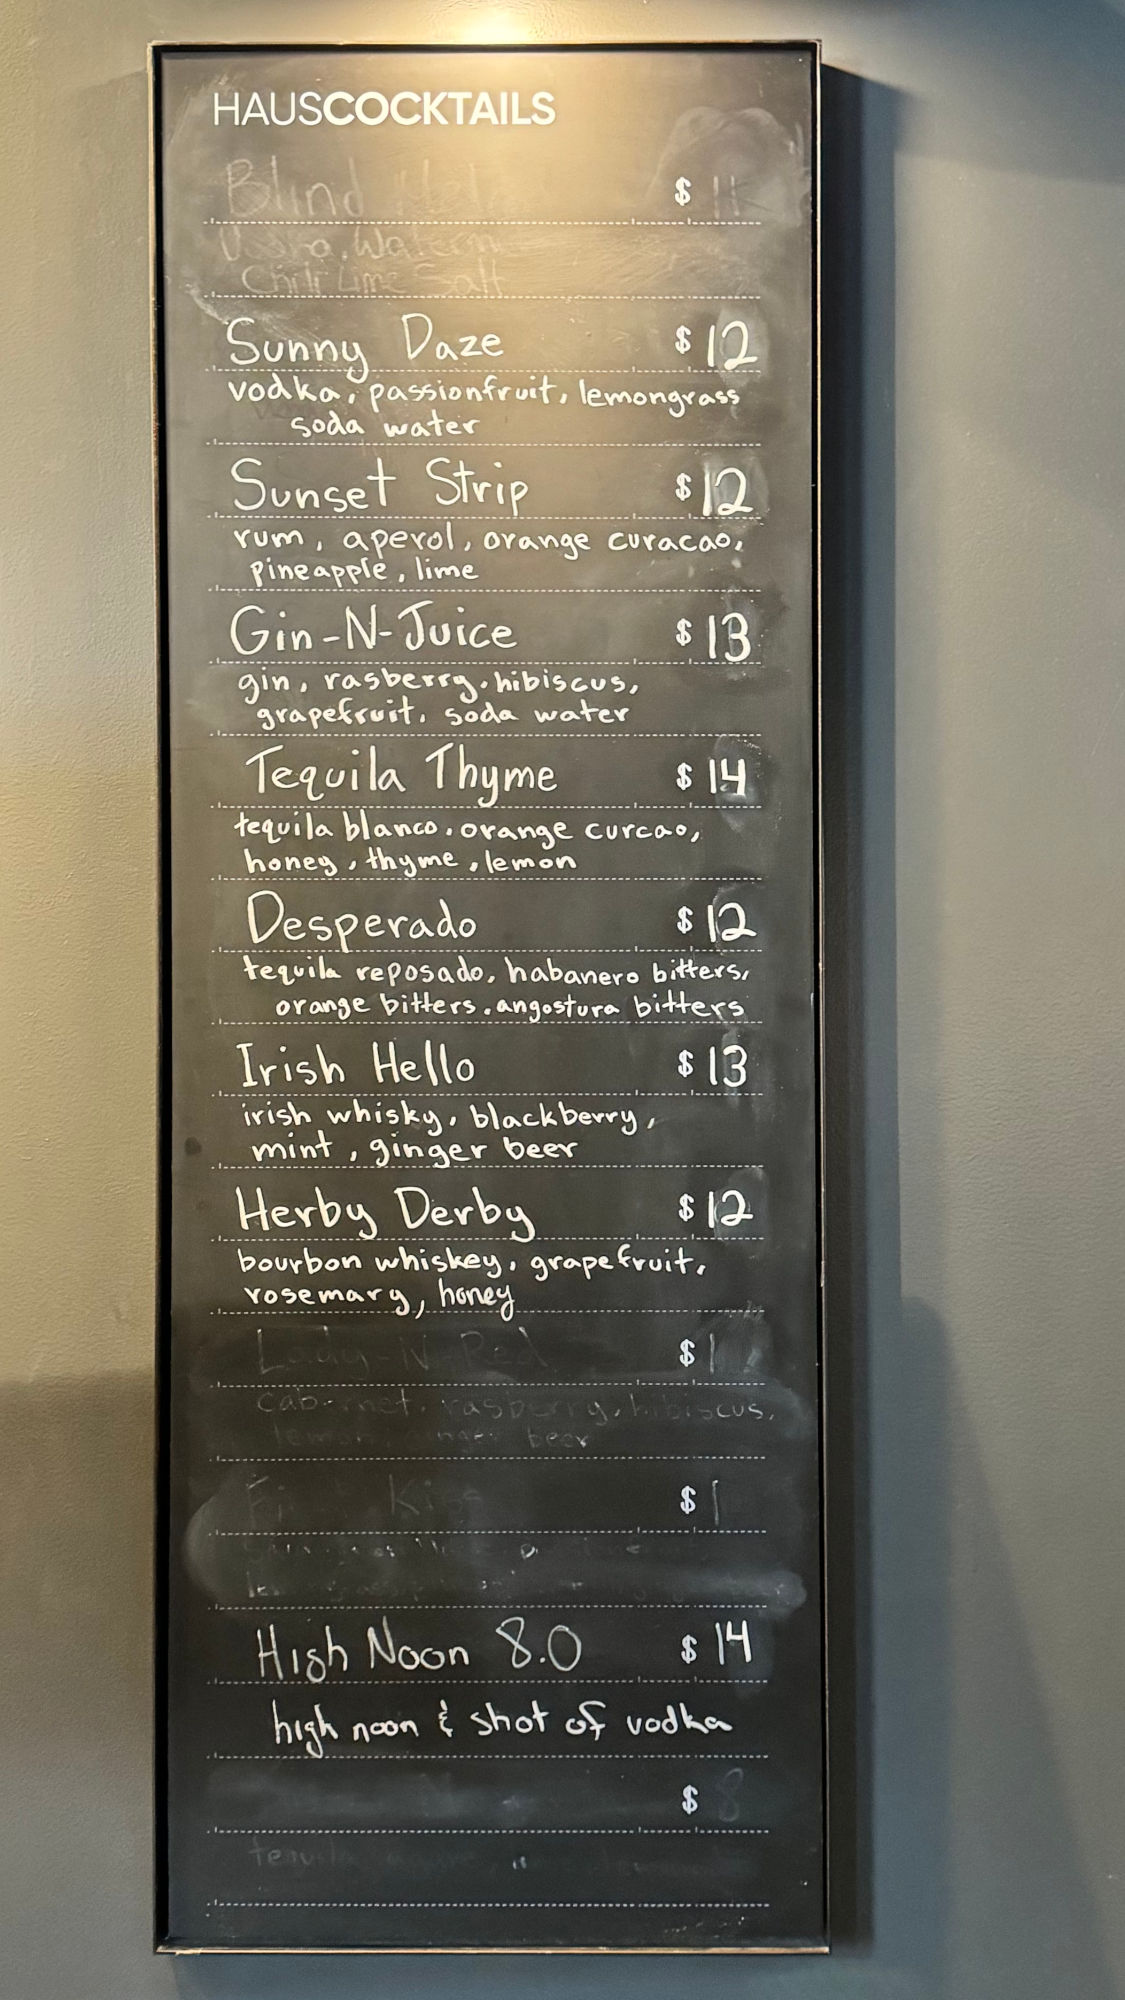 HAUSCOCKTAILS
Blind $ 11
Chili Lime Salt
Sunny Daze $ 12
vodka, passionfruit, lemongrass
soda water
Sunset Strip $ 12
rum, aperol, orange curacao,
pineapple, lime
Gin-N-Juice $ 13
gin, rasberry, hibiscus,
grapefruit, soda water
Tequila Thyme $ 14
tequila blanco, orange curcao,
honey, thyme, lemon
Desperado $ 12
tequila reposado, habanero bitters,
orange bitters, angostura bitters
Irish Hello $ 13
irish whisky, blackberry,
mint, ginger beer
Herby Derby $ 12
bourbon whiskey, grapefruit,
rosemary, honey
Lady-N-Red $ 1
cabernet, rasberry, hibiscus,
lemon, ginger beer
Kiss $ 1
High Noon 8.0 $ 14
high noon & shot of vodka
$ 8
tequila